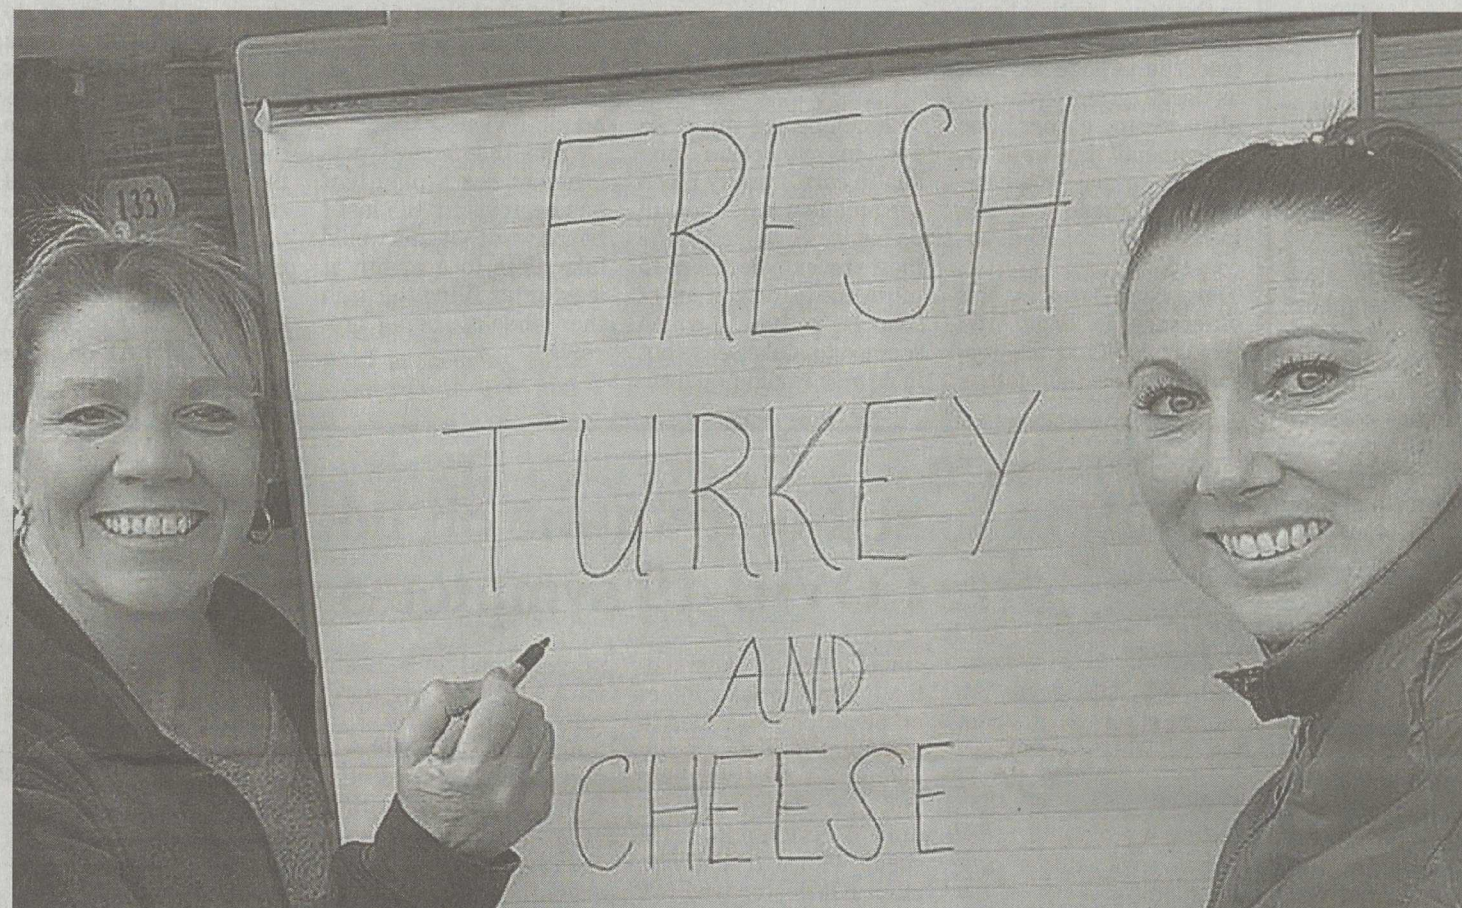 133
FRESH
TURKEY
AND
CHEESE